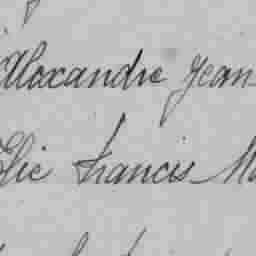 Alexandre Jean
Elie Francis Ma